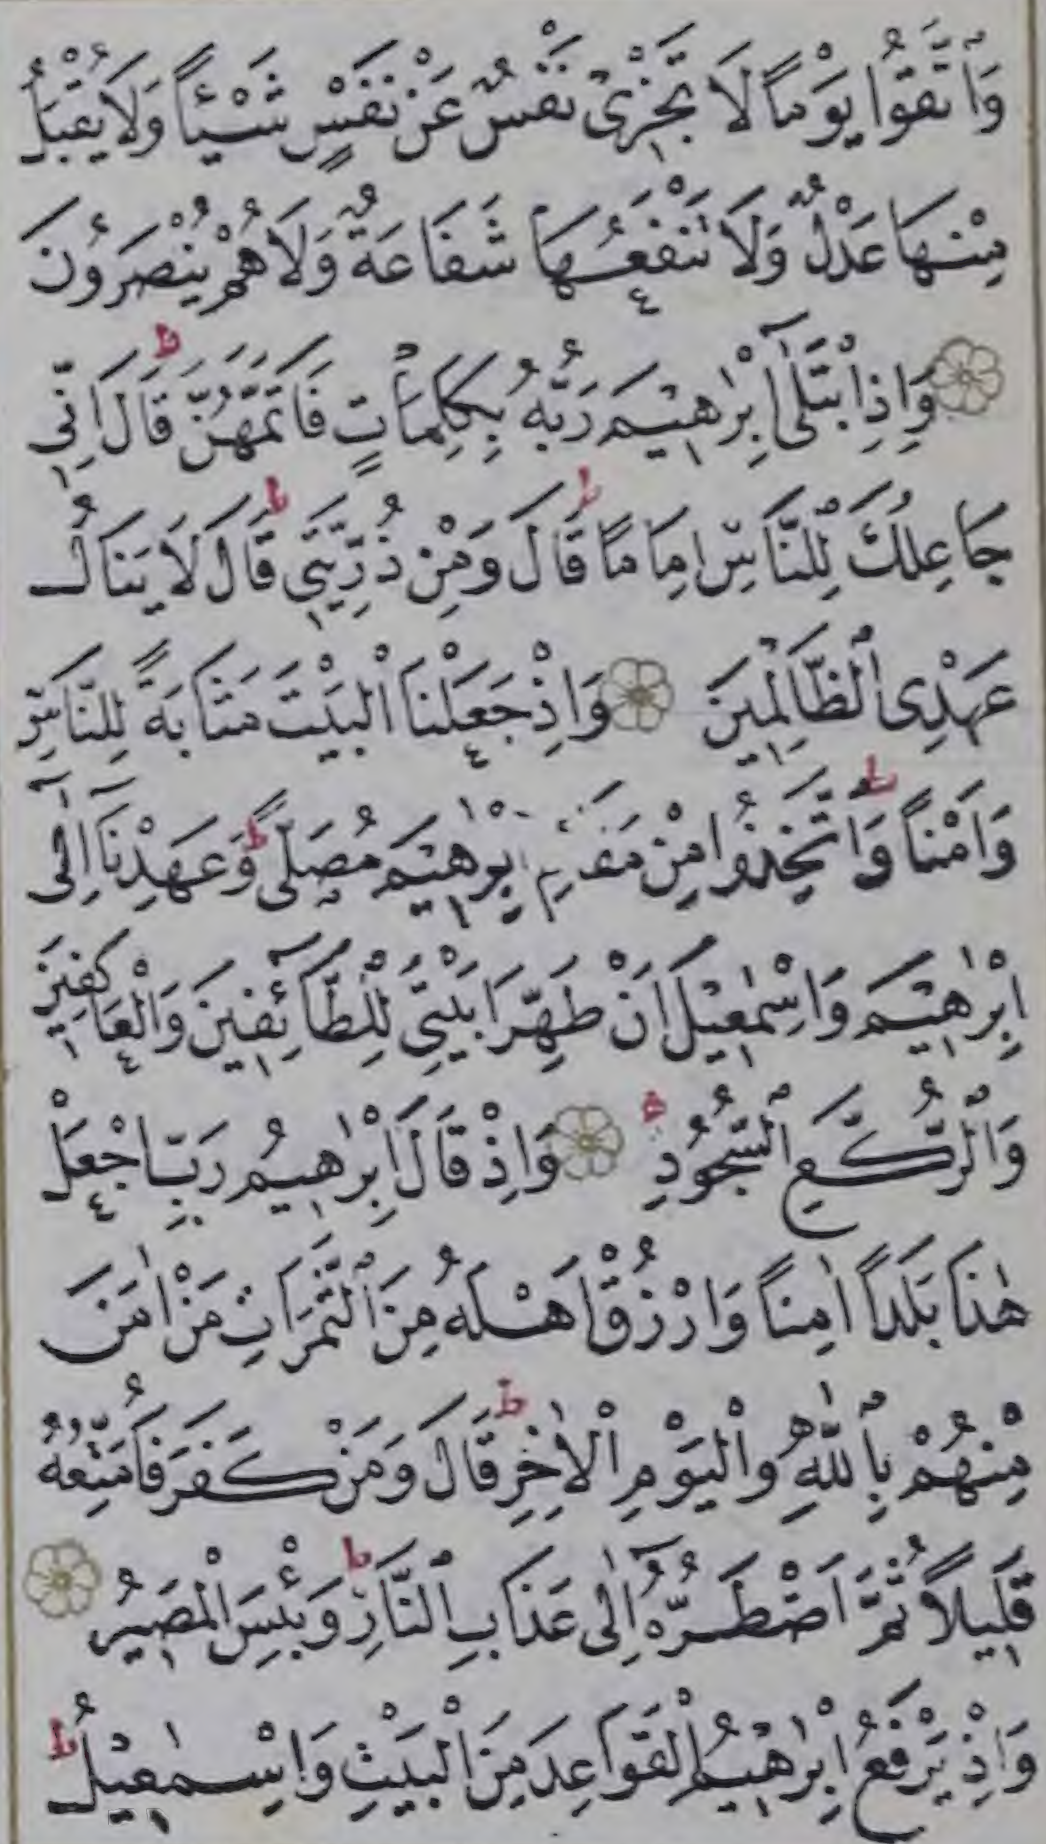 وَاتَّقُوا يَوْمًا لَا تَجْزِى نَفْسٌ عَنْ نَفْسٍ شَيْـًٔا وَلَا يُقْبَلُ
مِنْهَا عَدْلٌ وَلَا تَنْفَعُهَا شَفَاعَةٌ وَلَا هُمْ يُنْصَرُونَ
وَاِذِ ابْتَلٰٓى اِبْرٰهٖيمَ رَبُّهُ بِكَلِمَاتٍ فَاَتَمَّهُنَّ ط قَالَ اِنّٖى
جَاعِلُكَ لِلنَّاسِ اِمَامًا ط قَالَ وَمِنْ ذُرِّيَّتٖى ط قَالَ لَا يَنَالُ
عَهْدِى الظَّالِمٖينَ وَاِذْ جَعَلْنَا الْبَيْتَ مَثَابَةً لِلنَّاسِ
وَاَمْنًا ط وَاتَّخِذُوا مِنْ مَقَامِ اِبْرٰهٖيمَ مُصَلًّى ط وَعَهِدْنَٓا اِلٰٓى
اِبْرٰهٖيمَ وَاِسْمٰعٖيلَ اَنْ طَهِّرَا بَيْتِىَ لِلطَّٓائِفٖينَ وَالْعَاكِفٖينَ
وَالرُّكَّعِ السُّجُودِ وَاِذْ قَالَ اِبْرٰهٖيمُ رَبِّ اجْعَلْ
هٰذَا بَلَدًا اٰمِنًا وَارْزُقْ اَهْلَهُ مِنَ الثَّمَرَاتِ مَنْ اٰمَنَ
مِنْهُمْ بِاللّٰهِ وَالْيَوْمِ الْاٰخِرِ ط قَالَ وَمَنْ كَفَرَ فَاُمَتِّعُهُ
قَلٖيلًا ثُمَّ اَضْطَرُّهُٓ اِلٰى عَذَابِ النَّارِ ط وَبِئْسَ الْمَصٖيرُ
وَاِذْ يَرْفَعُ اِبْرٰهٖيمُ الْقَوَاعِدَ مِنَ الْبَيْتِ وَاِسْمٰعٖيلُ ط